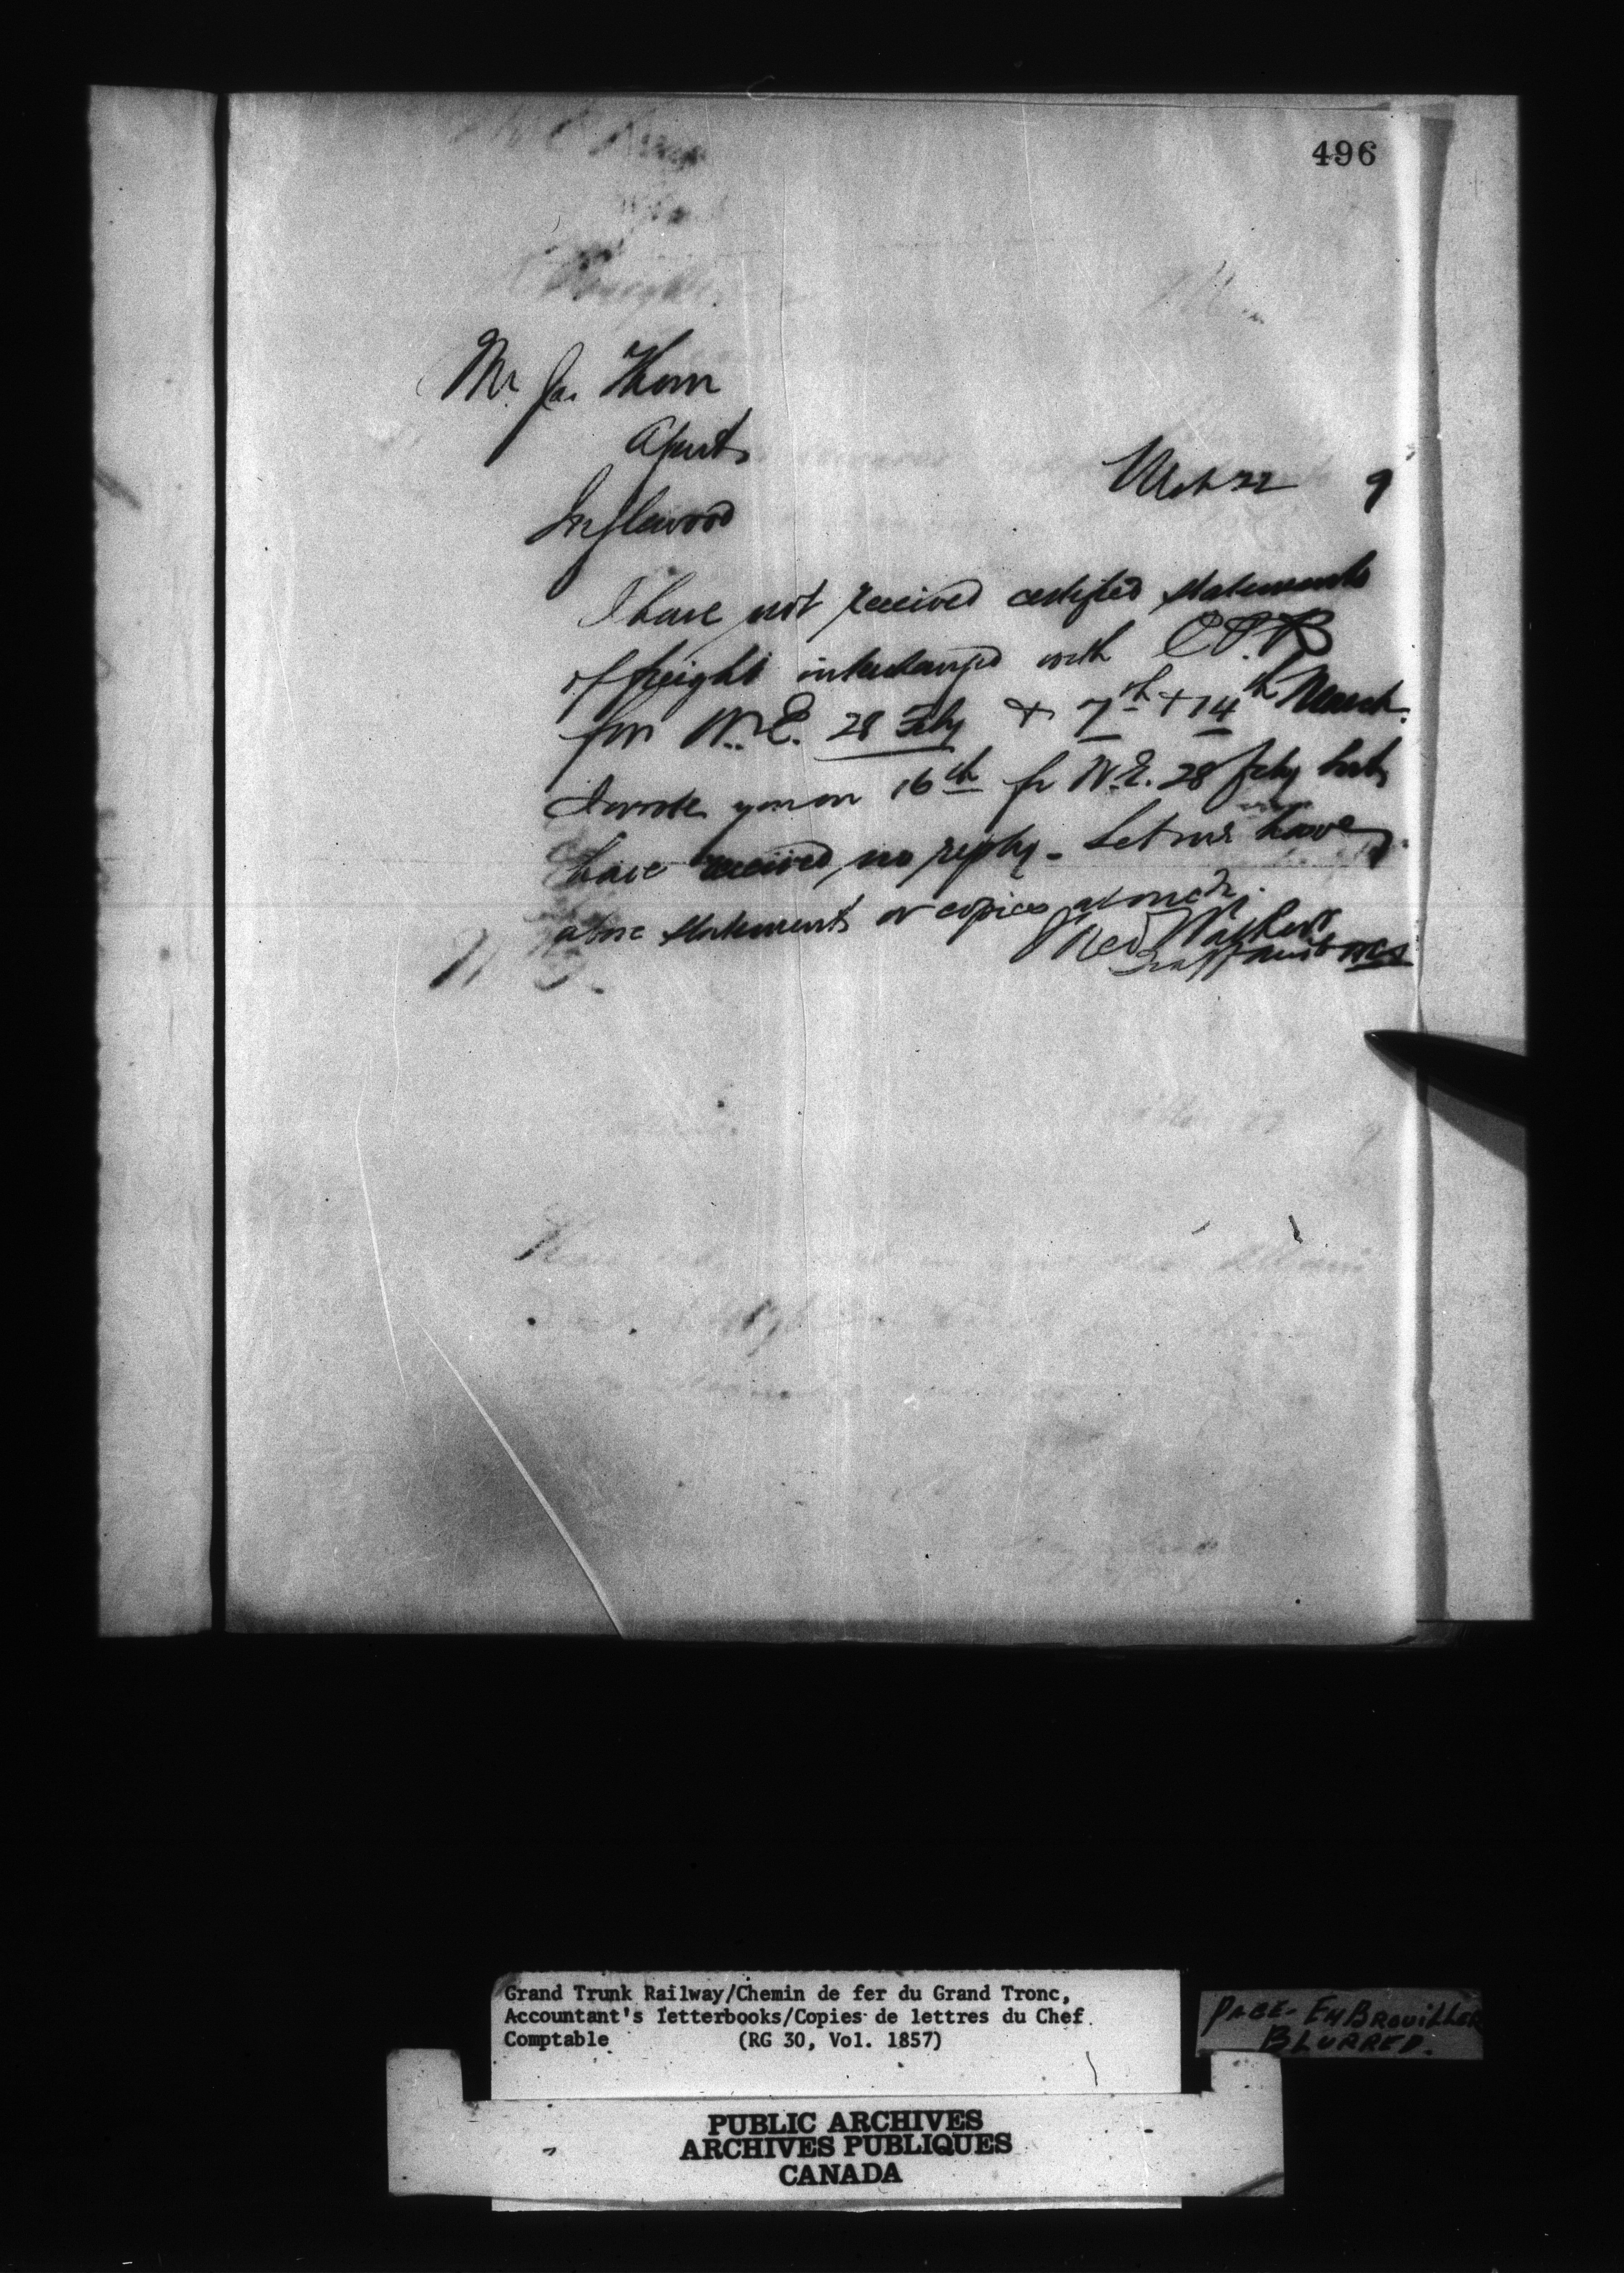 496
Mr. Jas. Thom
Agent,
Inglewood
Mch 22 9
I have not received certified statements
of freight interchanged with C.P.R
for W.E. 28 Feby + 7th + 14th March.
I wrote you on 16th for W.E. 28 Feby but
have received no reply. Let me have
above statements or copies at once.
Walker
Grand Trunk Railway/Chemin de fer du Grand Tronc,
Accountant's letterbooks/Copies de lettres du Chef
Comptable (RG 30, Vol. 1857)
PAGE - EMBROUILLER
BLURRED.
PUBLIC ARCHIVES
ARCHIVES PUBLIQUES
CANADA